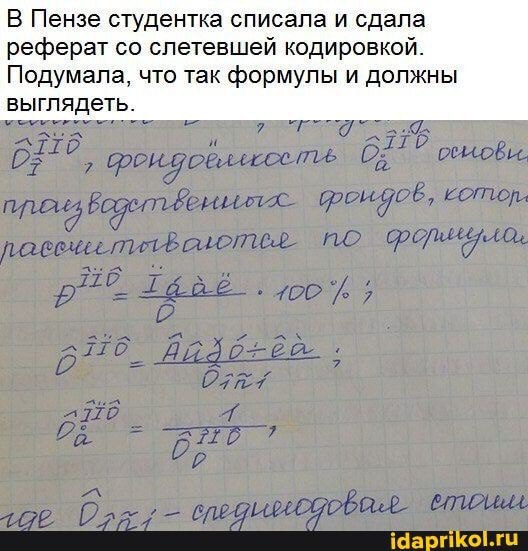 В Пензе студентка списала и сдала
реферат со слетевшей кодировкой.
Подумала, что так формулы и должны
выглядеть.
Ô ÎÏÔ Î , фондоёмкость Ô ÎÏÔ å основн
производственных фондов, котор
рассчитываются по формулам
Ð ÎÏÔ = Ïáàë / Ô · 100 % ;
Ô ÎÏÔ = Âûðó÷êà / Ôîñí ;
Ô ÎÏÔ å = 1 / Ô ÎÏÔ О ,
где Ôîñí - среднегодовая стоим
idaprikol.ru